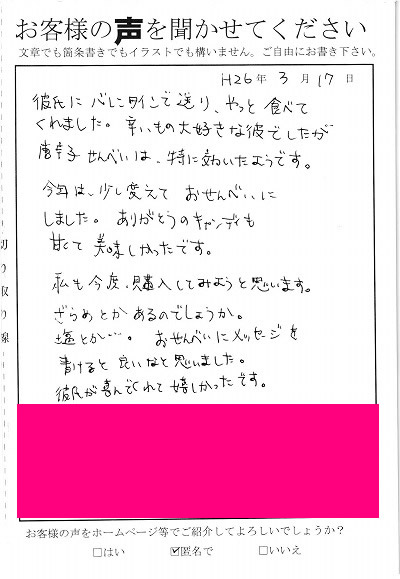 お客様の声を聞かせてください
文章でも箇条書きでもイラストでも構いません。ご自由にお書き下さい。
H26年 3月 17日
彼氏にバレンタインで送り、やっと食べて
くれました。辛いもの大好きな彼でしたが
唐辛子せんべいは、特に効いたようです。
今年は、少し変えて おせんべいに
しました。ありがとうのキャンディも
甘くて美味しかったです。
私も今度、購入してみようと思います。
ざらめとかあるのでしょうか。
塩とか…。おせんべいにメッセージを
書けると良いなと思いました。
彼氏が喜んでくれて嬉しかったです。
切り取り線
お客様の声をホームページ等でご紹介してよろしいでしょうか?
□はい ☑匿名で □いいえ